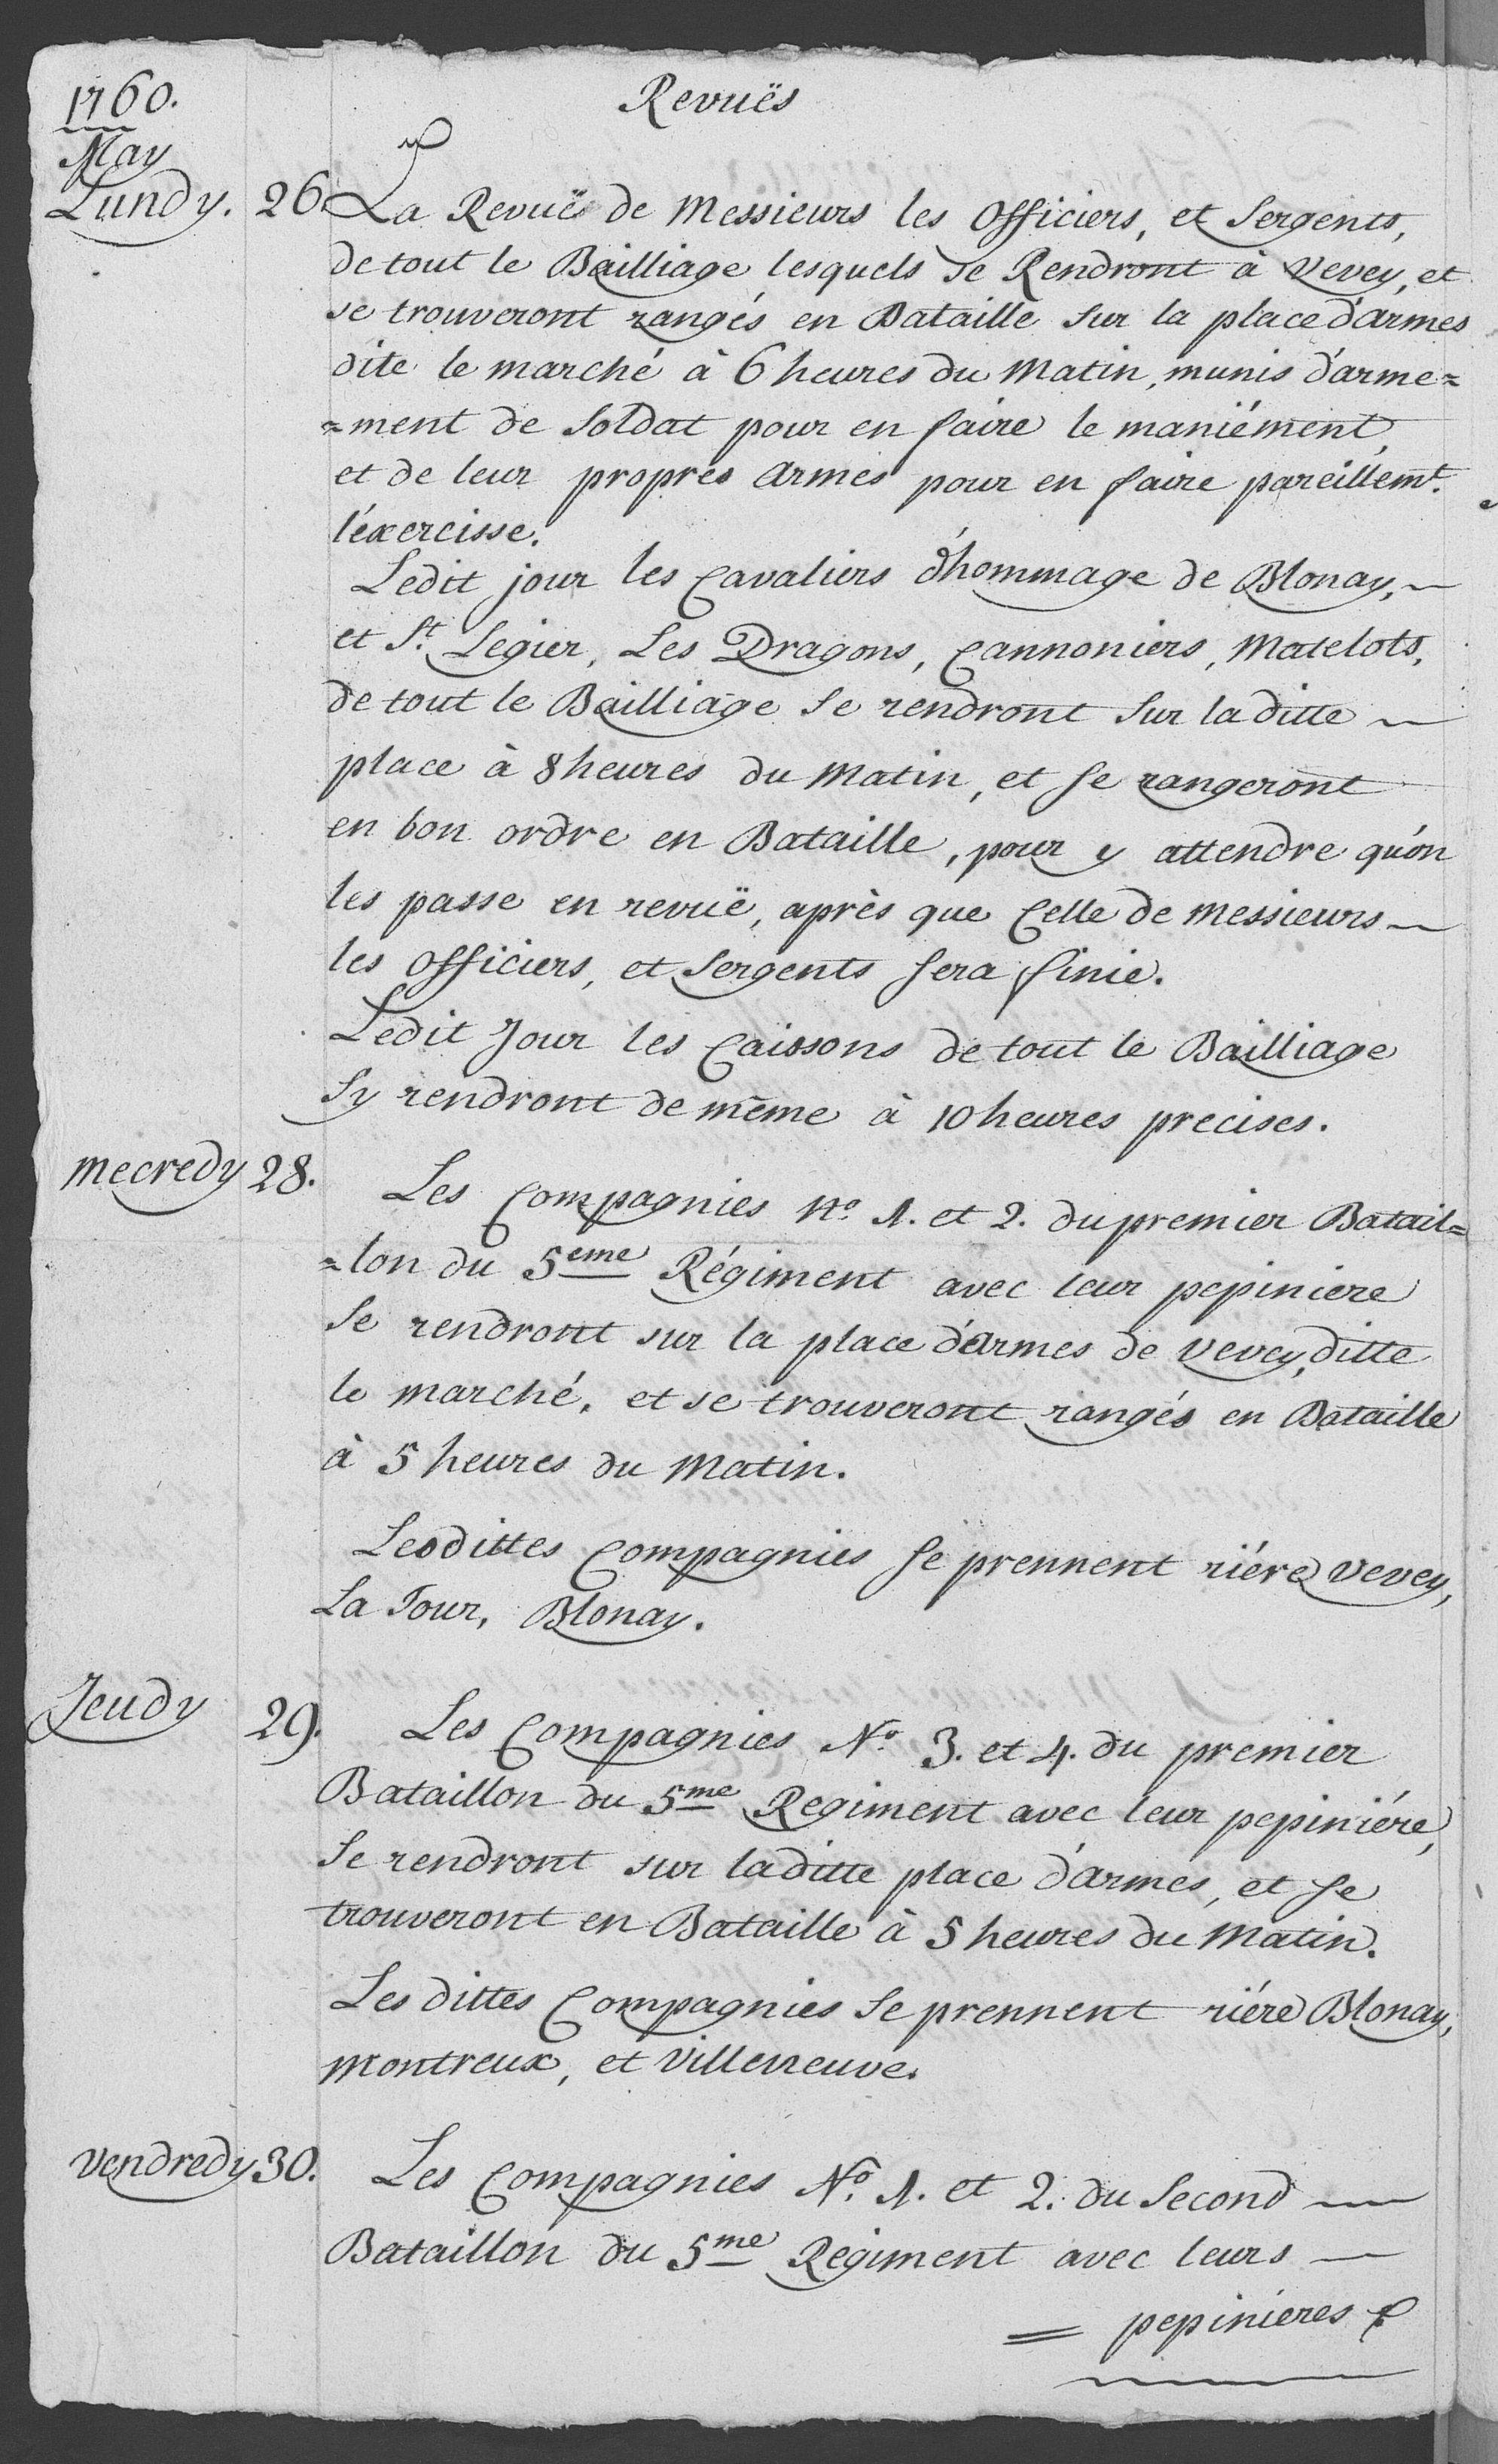 1760.
Revuës
May
Lundy. 26. La Revuë de Messieurs les Officiers, et Sergents,
de tout le Bailliage lesquels se Rendront à Vevey, et
se trouveront rangés en Bataille sur la place d'armes
dite le marché à 6 heures du Matin, munis d'arme=
=ment de Soldat pour en faire le maniément,
et de leur propres Armes pour en faire pareillemt.
l'éxercisse.
Ledit jour les Cavaliers d'hommage de Blonay, ~
et St. Legier, Les Dragons, Cannoniers, Matelots,
de tout le Bailliage Se rendront Sur laditte ~
place à 8 heures du Matin, et se rangeront
en bon ordre en Bataille, pour y attendre qu'on
les passe en revuë, après que Celle de Messieurs ~
les Officiers, et Sergents sera finie.
Ledit Jour les Caissons de tout le Bailliage
Sy rendront de même à 10 heures precises.
Mecredy 28. Les Compagnies No. 1. et 2. du premier Batail=
=lon du 5eme Régiment avec leur pepiniere
Se rendront sur la place d'armes de Vevey, ditte
le marché, et se trouveront rangés en Bataille
à 5 heures du Matin.
Lesdittes Compagnies Se prennent riére Vevey,
La Tour, Blonay.
Jeudy 29. Les Compagnies No. 3. et 4. du premier
Bataillon du 5me Regiment avec leur pepiniére,
Se rendront sur laditte place d'armes, et se
trouveront en Bataille à 5 heures du Matin.
Les dittes Compagnies Se prennent riére Blonay,
Montreux, et Villeneuve.
Vendredy 30. Les Compagnies No. 1. et 2. du Second ~
Bataillon du 5me Regiment avec leurs ~
= pepinieres